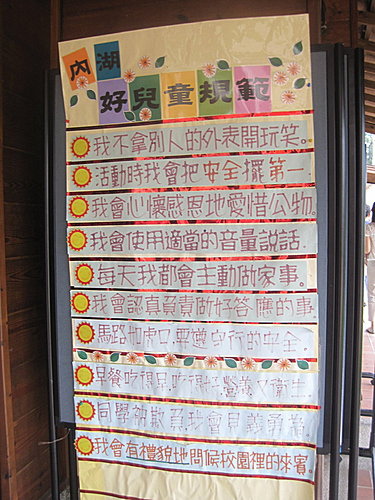 內湖
好兒童規範
我不拿別人的外表開玩笑。
活動時我會把安全擺第一
我會心懷感恩地愛惜公物。
我會使用適當的音量說話.
每天我都會主動做家事。
我會認真負責做好答應的事
馬路如虎口.要遵守行的安全。
早餐吃得早.吃得好營養又衛生
同學被欺負我會見義勇為
我會有禮貌地問候校園裡的來賓。